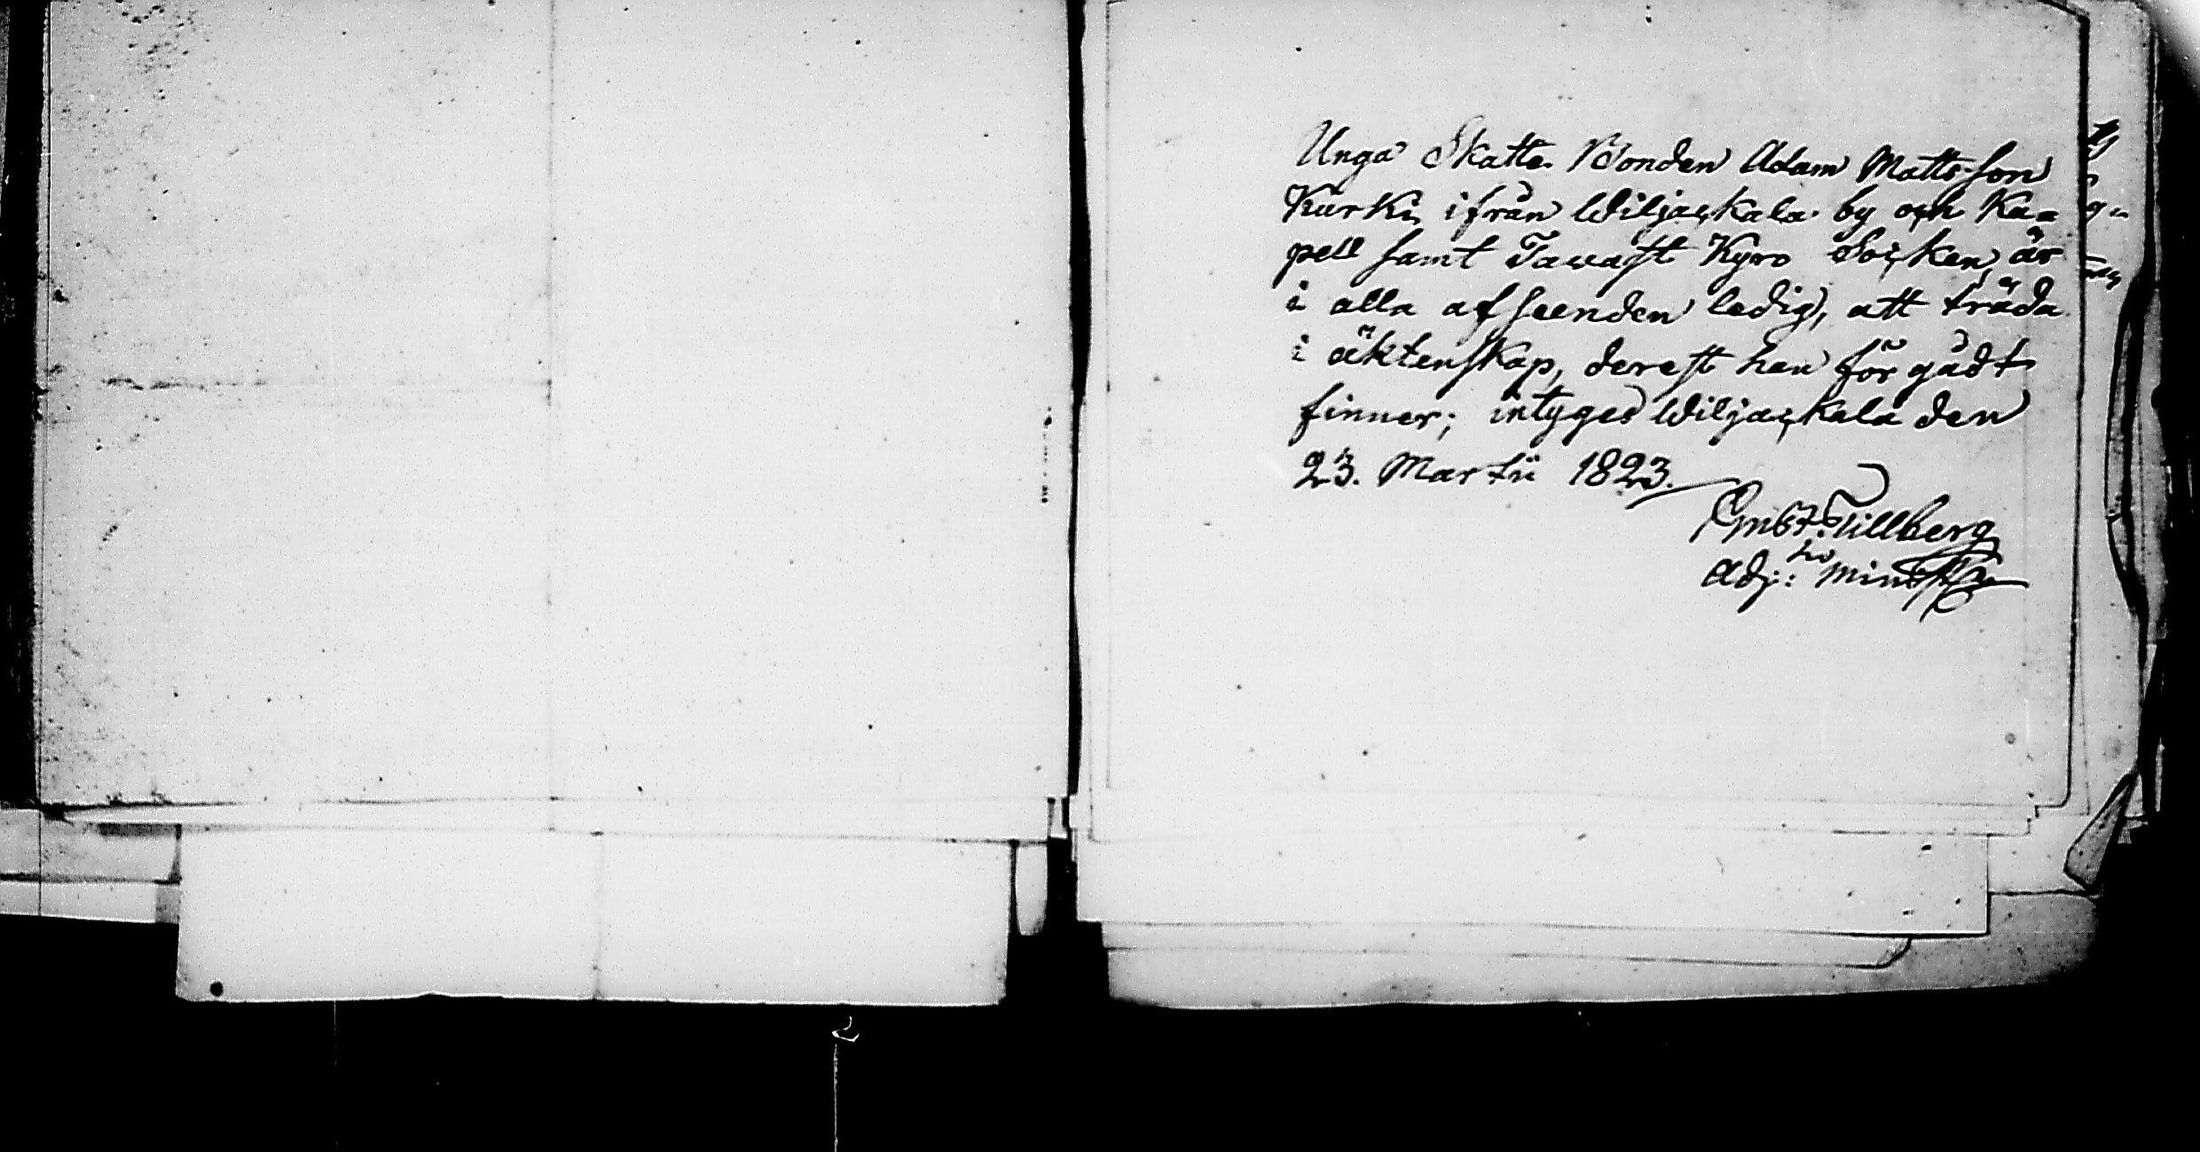 Unga Skatte Bonden Adam Mattsson
Kurki ifrån Wiljackala by och Ka=
pell samt Tavast Kyro Socken, är
i alla afseenden ledig, att träda
i äktenskap, derest han för gådt
finner; intyges Wiljackala den
23. Martii 1823.
Tillberg
Adj:
2